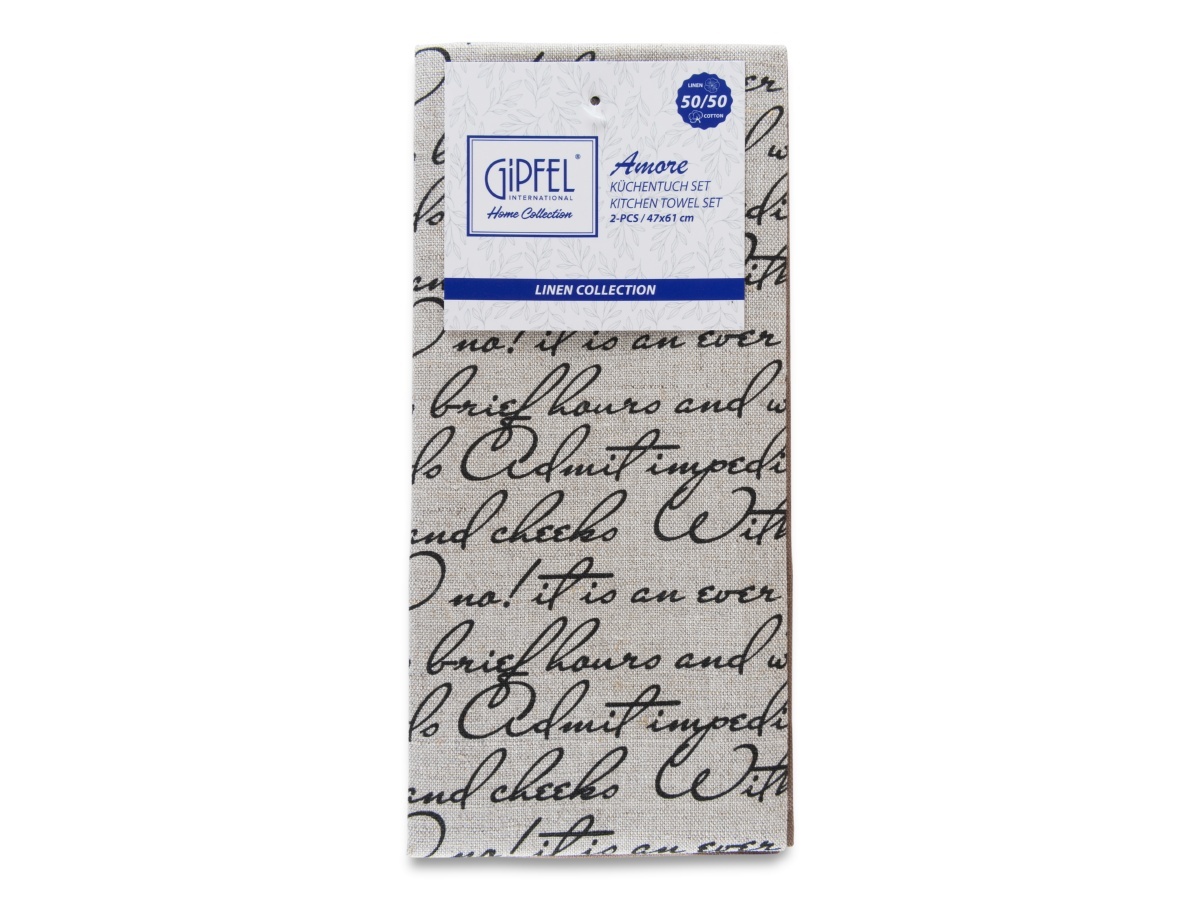 LINEN
50/50
COTTON
GiPFEL®
INTERNATIONAL
Home Collection
Amore
KÜCHENTUCH SET
KITCHEN TOWEL SET
2-PCS / 47x61 cm
LINEN COLLECTION
O no! it is an ever
brief hours and w
ds Admit impedi
and cheeks With
O no! it is an ever
brief hours and w
ds Admit impedi
and cheeks With
O no! it is an ever